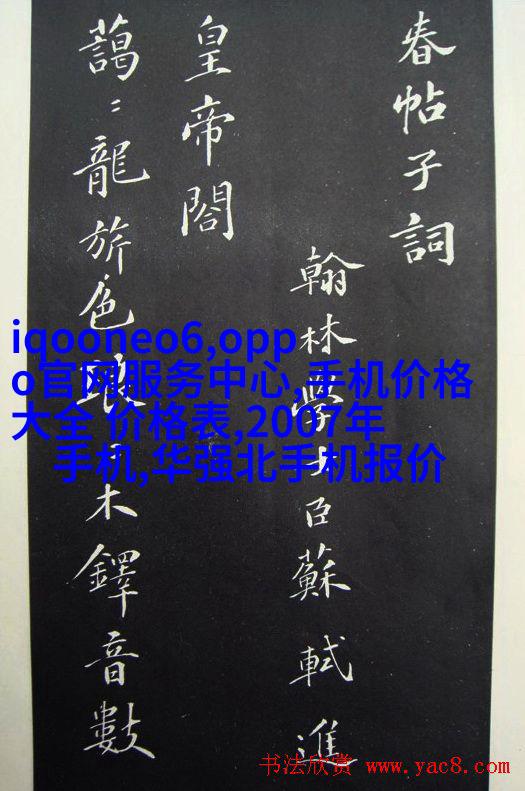 春帖子詞
翰林學士臣蘇軾進
皇帝閤
藹〻龍旂色琅〻木鐸音數
iqooneo6,opp
o官网服务中心,手机价格
大全 价格表,2007年
手机,华强北手机报价
书法欣赏 www.yac8.com